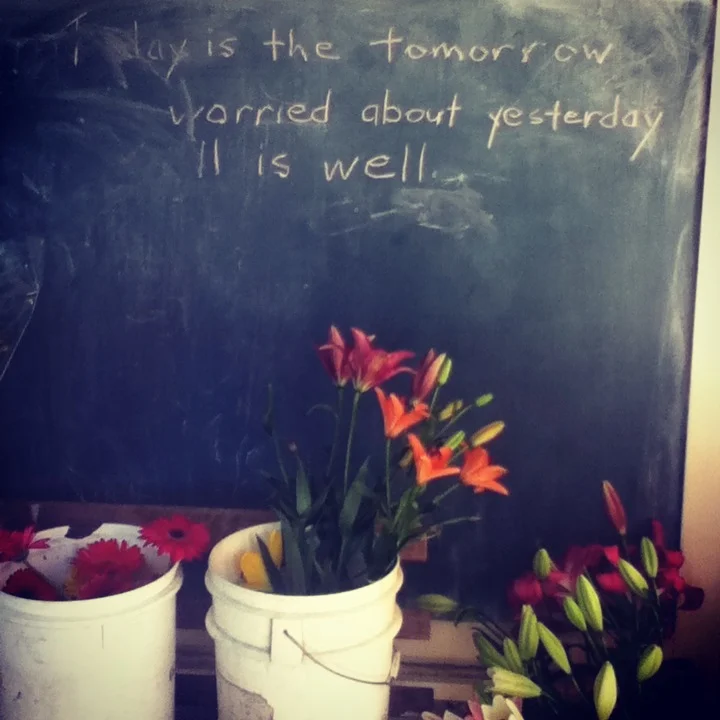 T day is the tomorrow
worried about yesterday
ll is well.